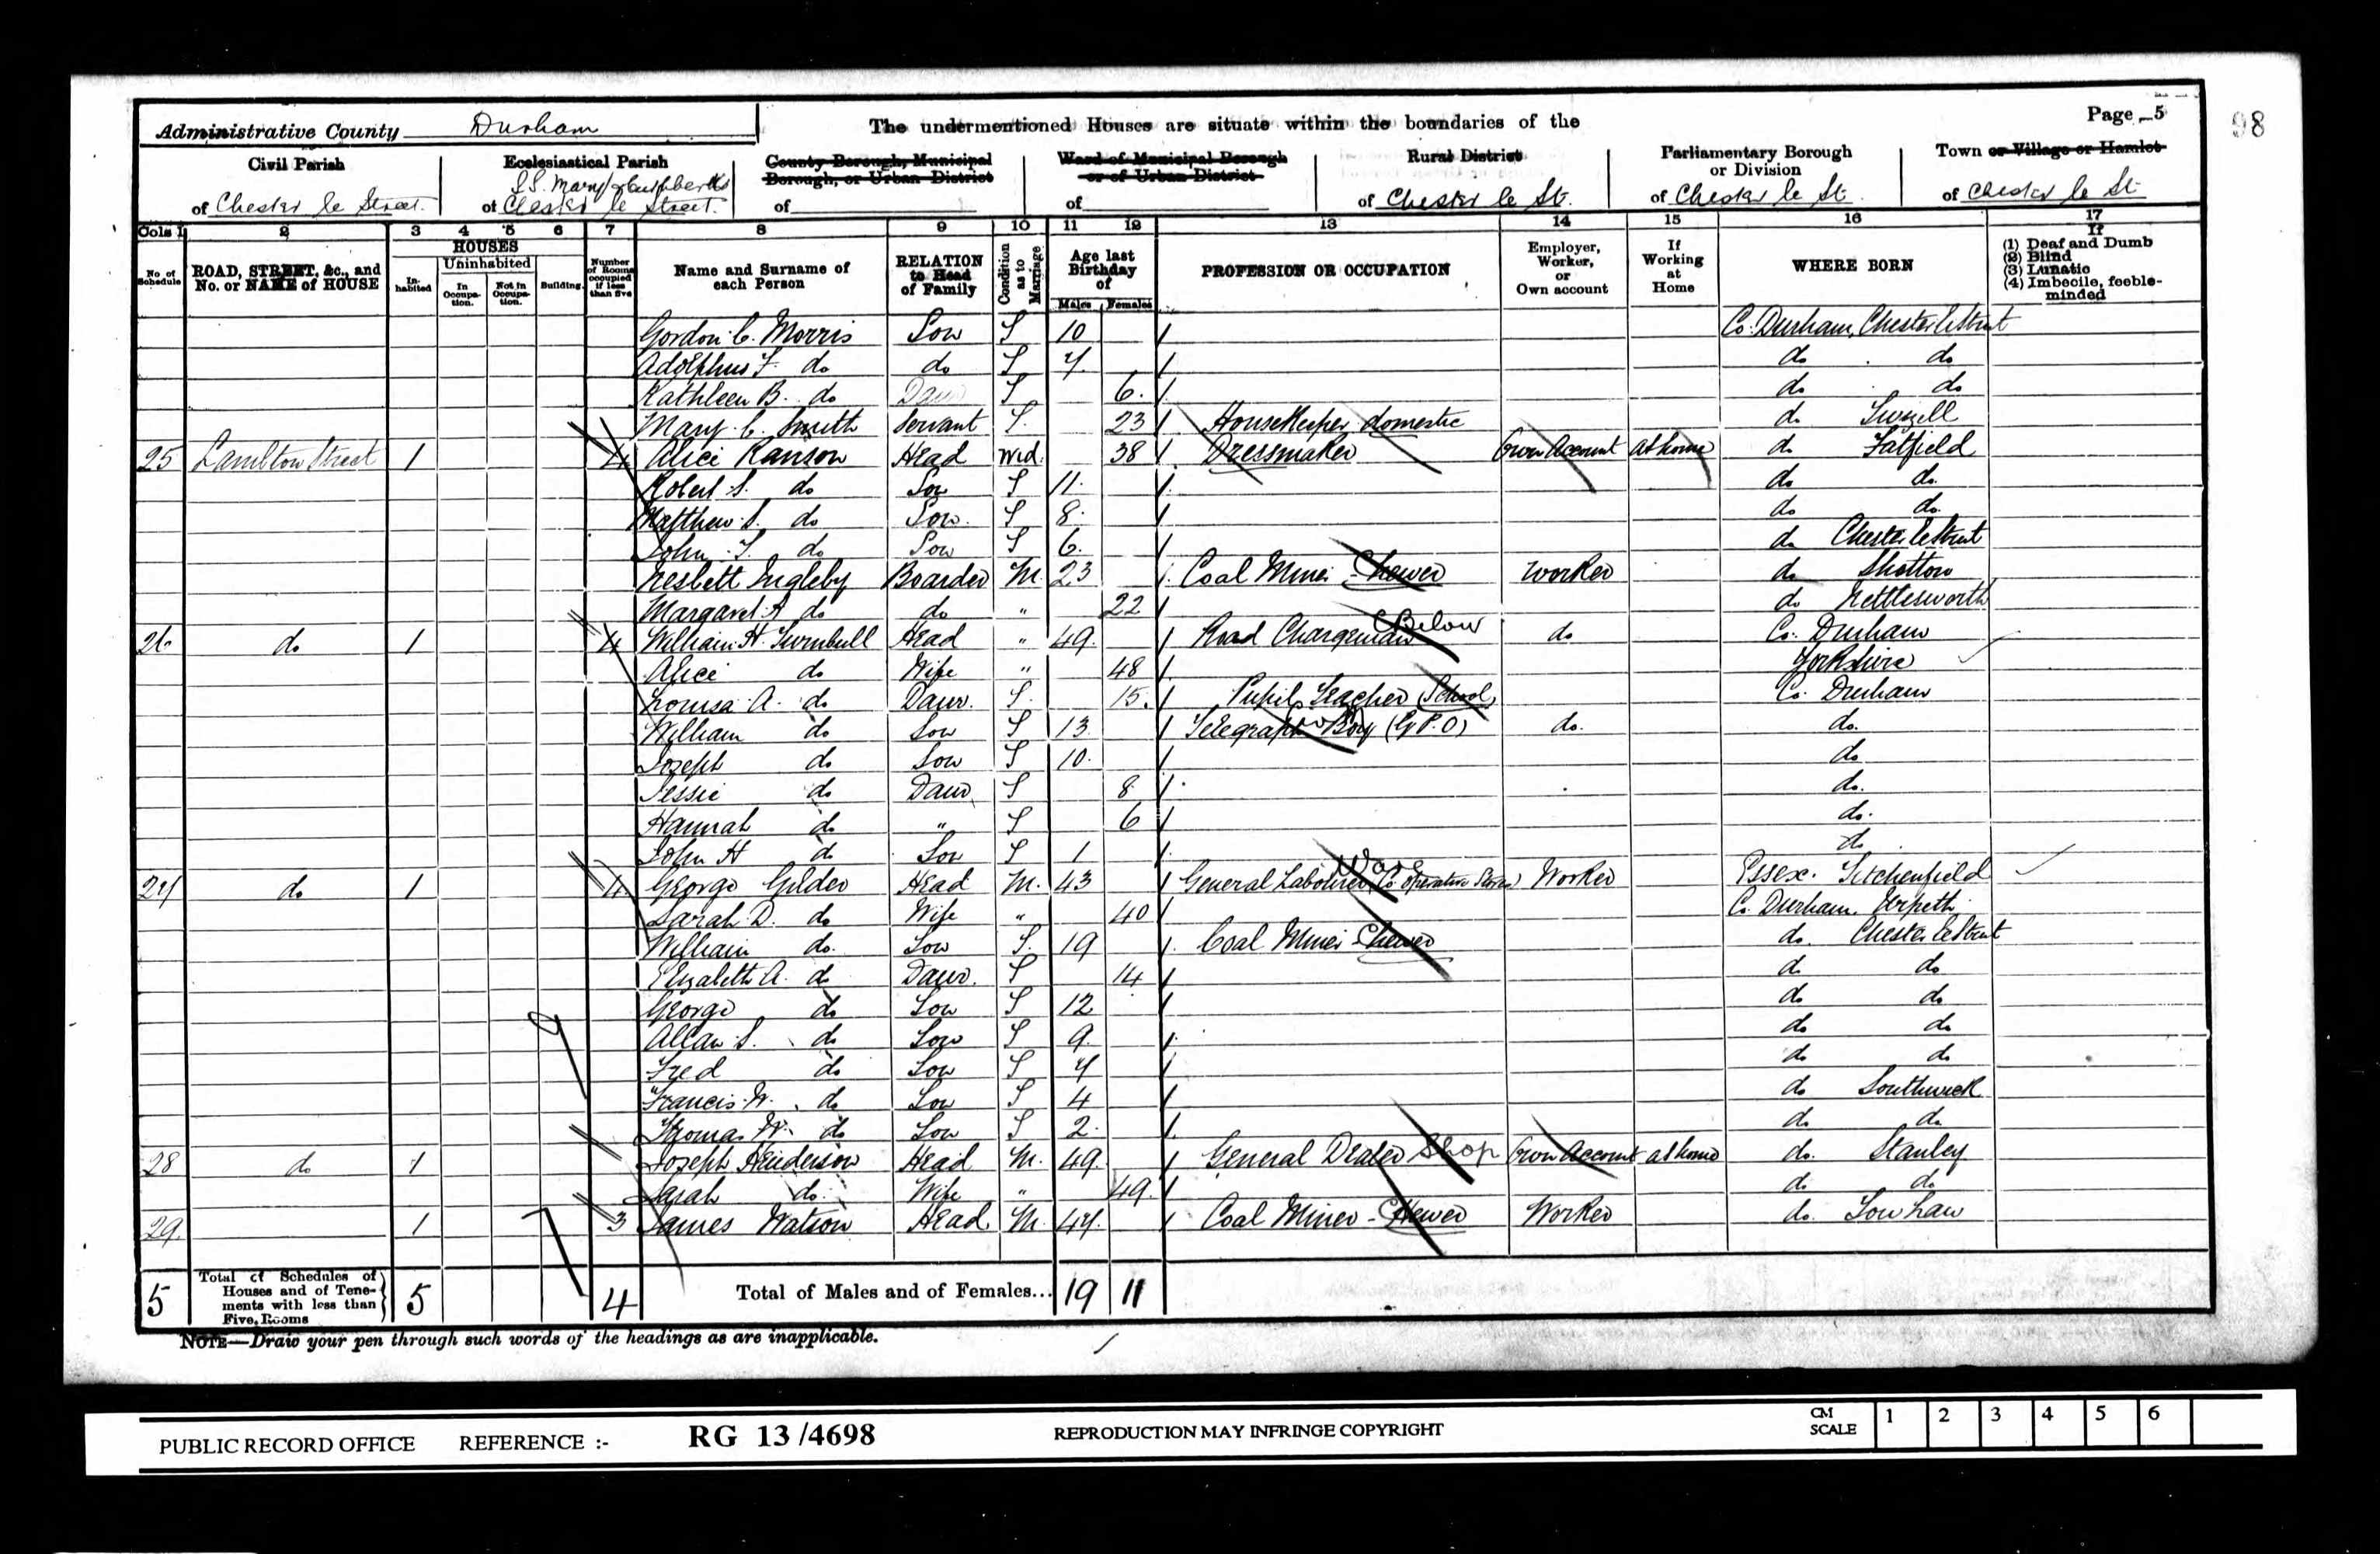 Page 5
98
Administrative County Durham
The undermentioned Houses are situate within the boundaries of the
Civil Parish
of Chester le Street.
Ecclesiastical Parish
S.S. Mary & Cuthberts
of Chester le Street.
County Borough, Municipal Borough, or Urban District
of
Ward of Municipal Borough or of Urban District
of
Rural District
of Chester le St.
Parliamentary Borough or Division
of Chester le St.
Town or Village or Hamlet
of Chester le St.
Cols 1 2 3 4 5 6 7 8 9 10 11 12 13 14 15 16 17
No. of Schedule
ROAD, STREET, &c., and No. or NAME of HOUSE
HOUSES
Inhabited
Uninhabited
In Occupation.
Not in Occupation.
Building.
Number of Rooms occupied if less than five
Name and Surname of each Person
RELATION to Head of Family
Condition as to Marriage
Age last Birthday of
Males Females
PROFESSION OR OCCUPATION
Employer, Worker, or Own account
If Working at Home
WHERE BORN
If
(1) Deaf and Dumb
(2) Blind
(3) Lunatic
(4) Imbecile, feeble-minded
Gordon C. Morris Son S 10 Co. Durham, Chester le Street
Adolphus F. do do S 7 do do
Kathleen B. do Daur S 6 do do
Mary C. Smith Servant S 23 Housekeeper domestic do
25 Lambton Street 1 4 Alice Ranson Head Wid. 38 Dressmaker Own Account At home do Fatfield
Robert S. do Son S 11 do do
Matthew S. do Son S 8 do do
John T. do Son S 6 do Chester le Street
Nesbett Ingleby Boarder M. 23 Coal Miner Hewer Worker do Shotton
Margaret A do do " 22 do Nettlesworth
26 do 1 4 William H. Turnbull Head " 49 Road Chargeman Below do Co. Durham
Alice do Wife " 48 Yorkshire
Louisa A. do Daur. S. 15 Pupil Teacher (School) Co. Durham
William do Son S 13 Telegraph Boy (G.P.O) do do
Joseph do Son S 10 do
Jessie do Daur S 8 do
Hannah do " S 6 do
John H do Son S 1 do
27 do 1 4 George Gilder Head M. 43 General Labourer, Co operative Stores Ware Worker Essex.
Sarah D. do Wife " 40 Co. Durham. Urpeth
William do Son S. 19 Coal Miner Hewer do Chester le Street
Elizabeth A. do Daur. S 14 do do
George do Son S 12 do do
Allan S. do Son S 9 do do
Fred do Son S 7 do do
Francis W. do Son S 4 do Southwick
Thomas W. do Son S 2 do do
28 do 1 Joseph Henderson Head M. 49 General Dealer Shop Own Account at home do Stanley
Sarah do Wife " 49 do do
29 1 3 James Watson Head M. 47 Coal Miner - Hewer Worker do Tow Law
5 Total of Schedules of Houses and of Tenements with less than Five Rooms 5 4 Total of Males and of Females... 19 11
NOTE—Draw your pen through such words of the headings as are inapplicable.
PUBLIC RECORD OFFICE REFERENCE :- RG 13/4698 REPRODUCTION MAY INFRINGE COPYRIGHT CM SCALE 1 2 3 4 5 6